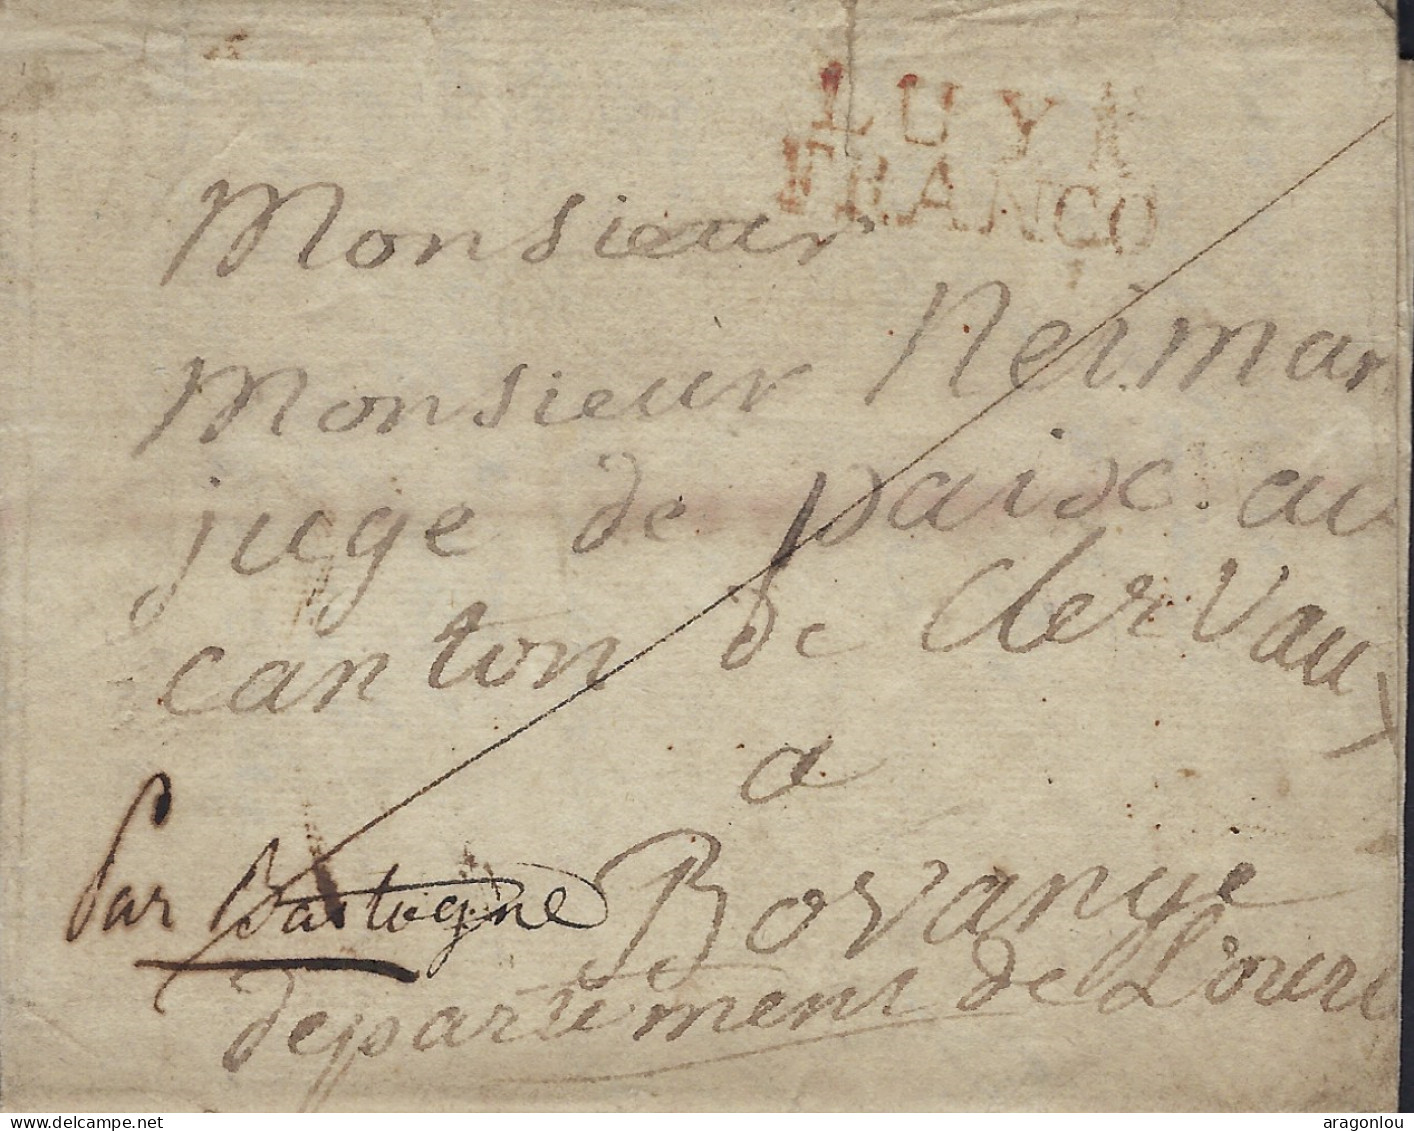 LUYK
FRANCO
Monsieur
Monsieur Neiman
juge de paix au
canton de Clervaux
a
Bovange
par Bastogne
departement de L'ourt
www.delcampe.net
aragonlou